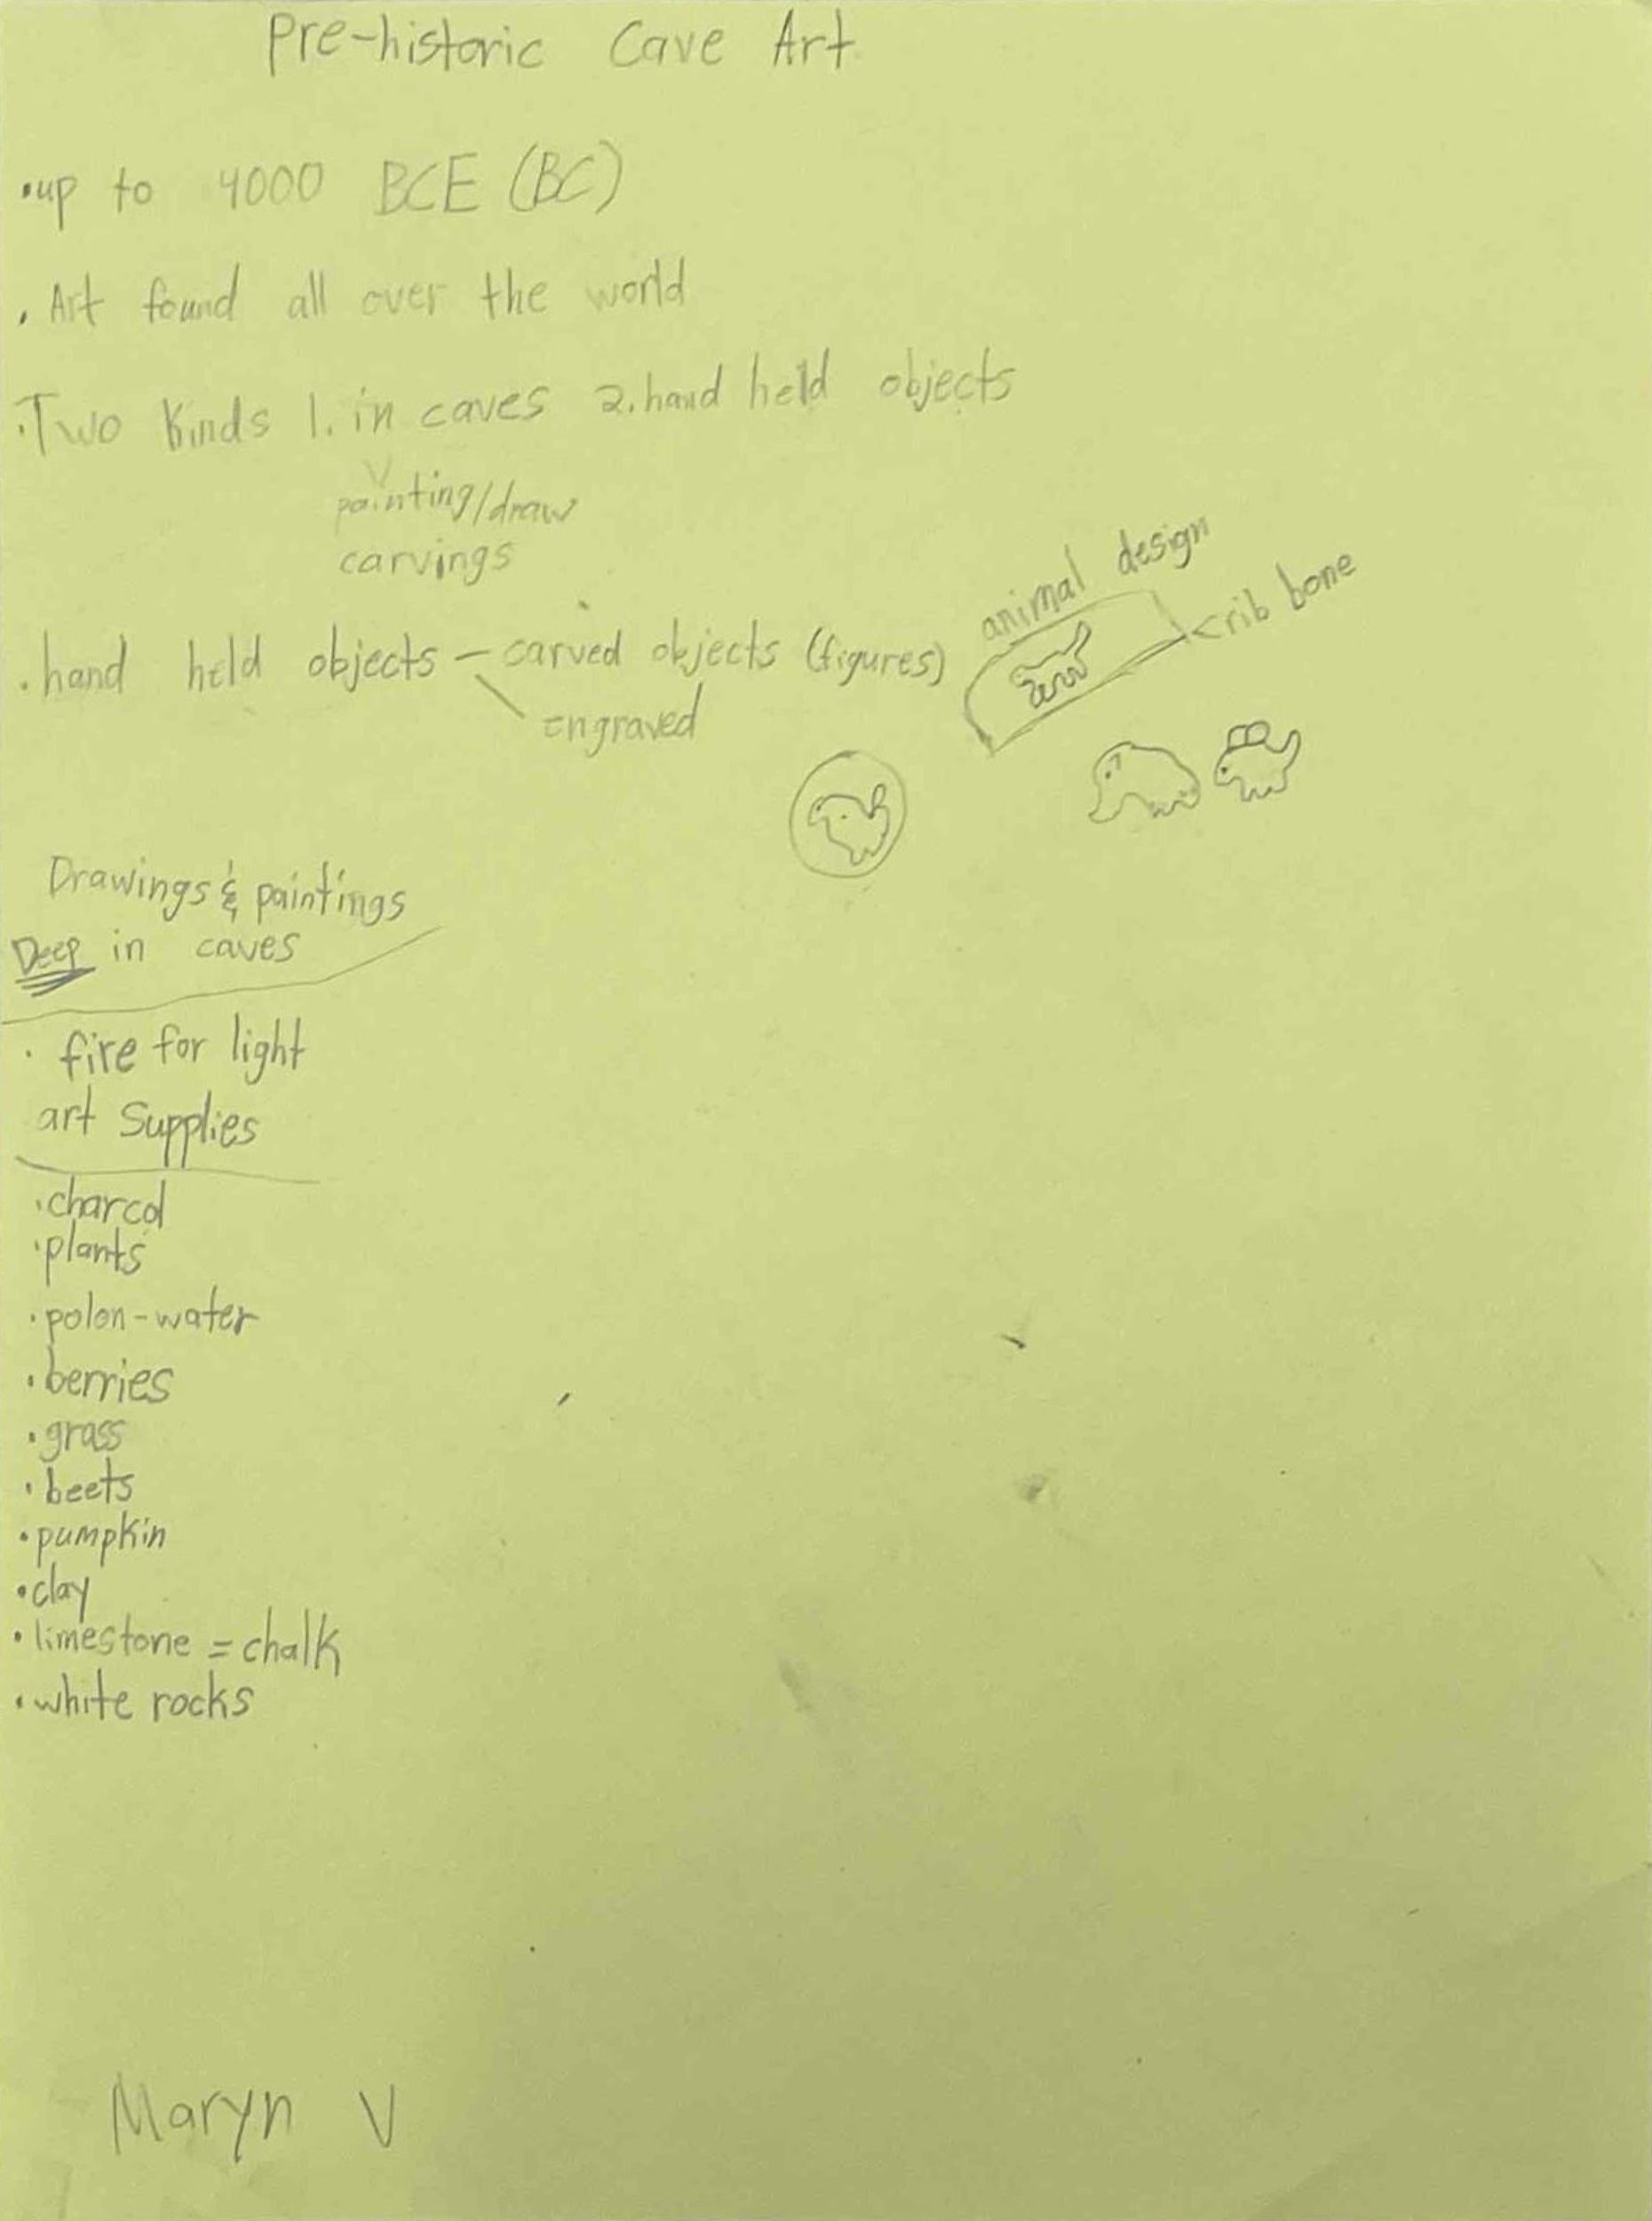 Pre-historic Cave Art
•up to 4000 BCE (BC)
. Art found all over the world
.Two Kinds 1. in caves 2. hand held objects
painting/draw
carvings
animal design
<rib bone
. hand held objects – carved objects (figures)
engraved
Drawings & paintings
Deep in caves
· fire for light
art Supplies
·charcol
·plants
·polon-water
·berries
·grass
·beets
·pumpkin
·clay
·limestone = chalk
·white rocks
Maryn V